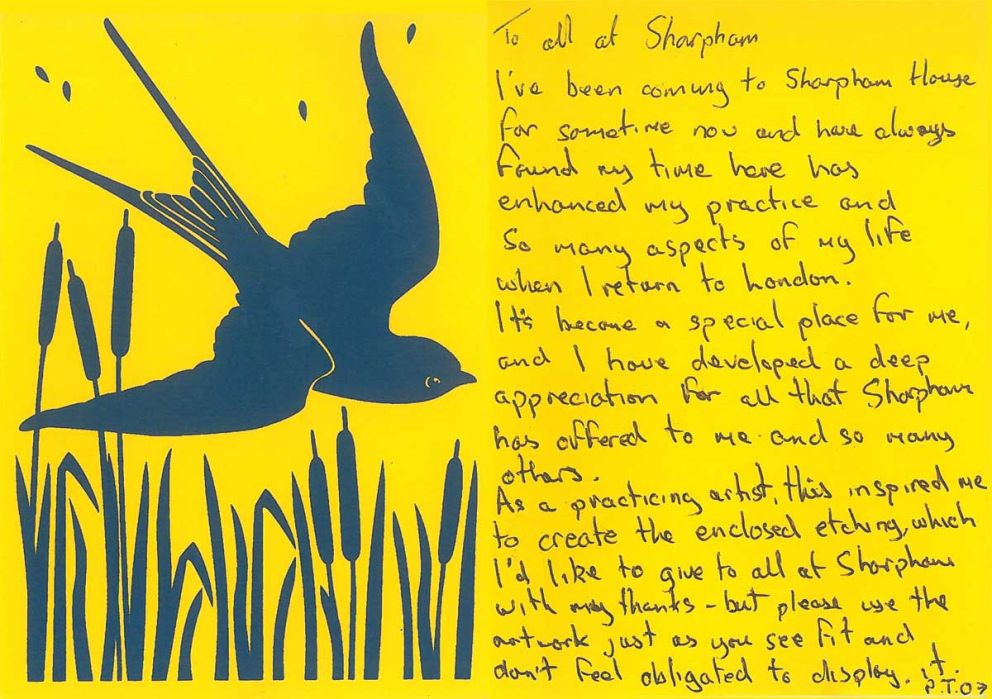 To all at Sharpham
I've been coming to Sharpham House
for sometime now and have always
found my time here has
enhanced my practice and
so many aspects of my life
when I return to London.
It's become a special place for me,
and I have developed a deep
appreciation for all that Sharpham
has offered to me and so many
others.
As a practicing artist, this inspired me
to create the enclosed etching, which
I'd like to give to all at Sharpham
with my thanks - but please use the
artwork just as you see fit and
don't feel obligated to display it.
P.T.O →